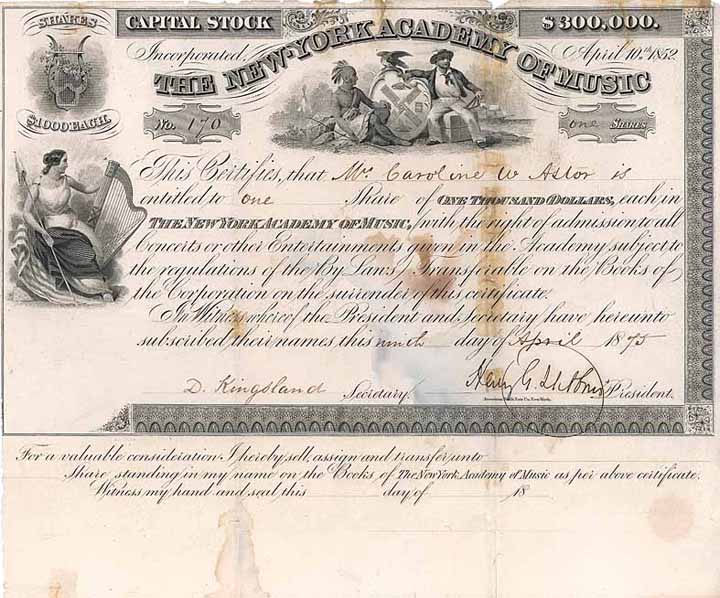 SHARES
$1000 EACH.
CAPITAL STOCK
$300,000.
Incorporated, April 10.th 1852.
THE NEW-YORK ACADEMY OF MUSIC
No. 170
one SHARES
This Certifies, that Mrs Caroline W Astor is
entitled to one Share of ONE THOUSAND DOLLARS, each in
THE NEW YORK ACADEMY OF MUSIC, with the right of admission to all
Concerts or other Entertainments given in the Academy subject to
the regulations of the By Laws, Transferable on the Books of
the Corporation on the surrender of this certificate.
In Witness whereof the President and Secretary have hereunto
subscribed their names, this ninth day of April 1875
D. Kingsland Secretary. Henry G. President.
American Bank Note Co. New-York.
For a valuable consideration I hereby sell, assign and transfer, unto
Share standing in my name on the Books of The New York Academy of Music as per above certificate.
Witness my hand and seal this day of 18